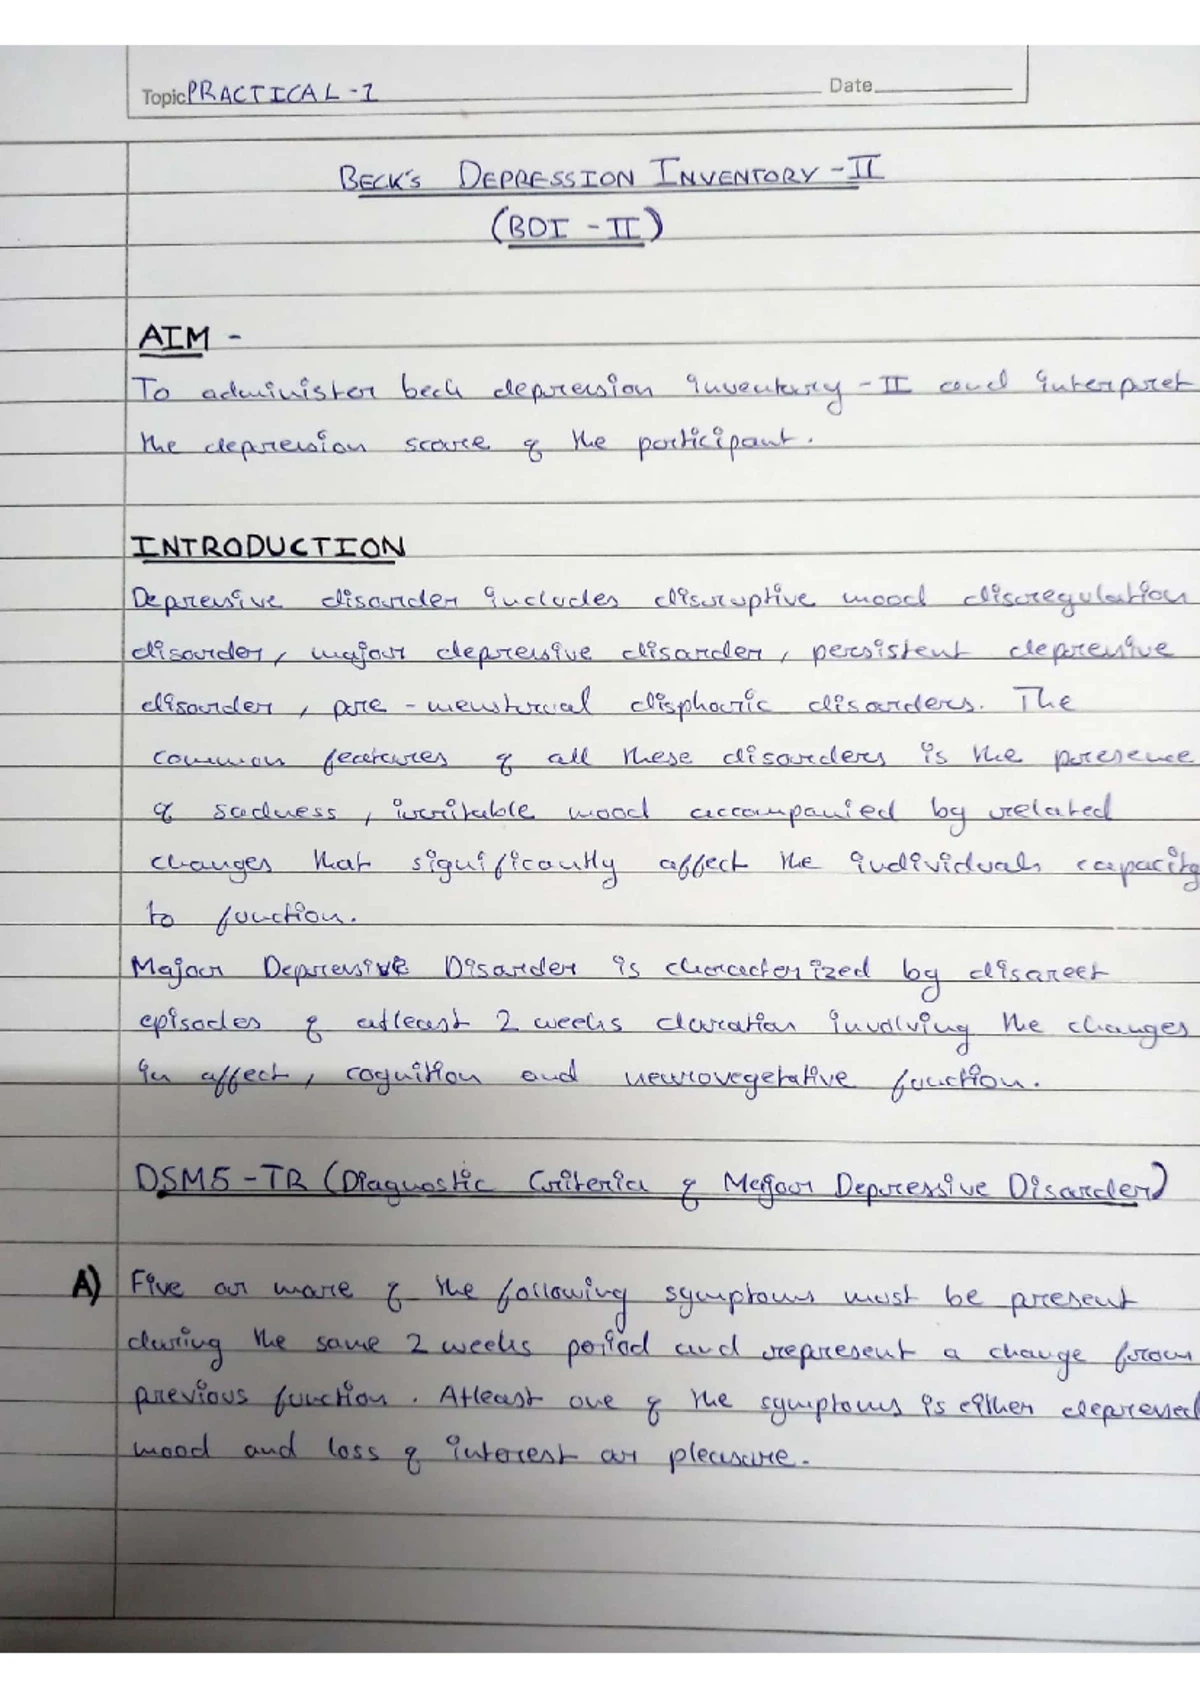 Topic PRACTICAL-1
Date
BECK'S DEPRESSION INVENTORY-II
(BDI-II)
AIM -
To administer beck depression inventory-II and interpret
the depression score of the participant.
INTRODUCTION
Depressive disorder includes disruptive mood disregulation
disorder, major depressive disorder, persistent depressive
disorder, pre-menstural disphoric disorders. The
common features of all these disorders is the presence
of sadness, irritable mood accompanied by related
changes that significantly affect the individuals capacity
to function.
Major Depressive Disorder is characterized by discreet
episodes of atleast 2 weeks duration involving the changes
in affect, cognition and neurovegetative function.
DSM5-TR (Diagnostic Criteria of Major Depressive Disorder)
A) Five or more of the following symptoms must be present
during the same 2 weeks period and represent a change from
previous function. Atleast one of the symptoms is either depressed
mood and loss of interest or pleasure.